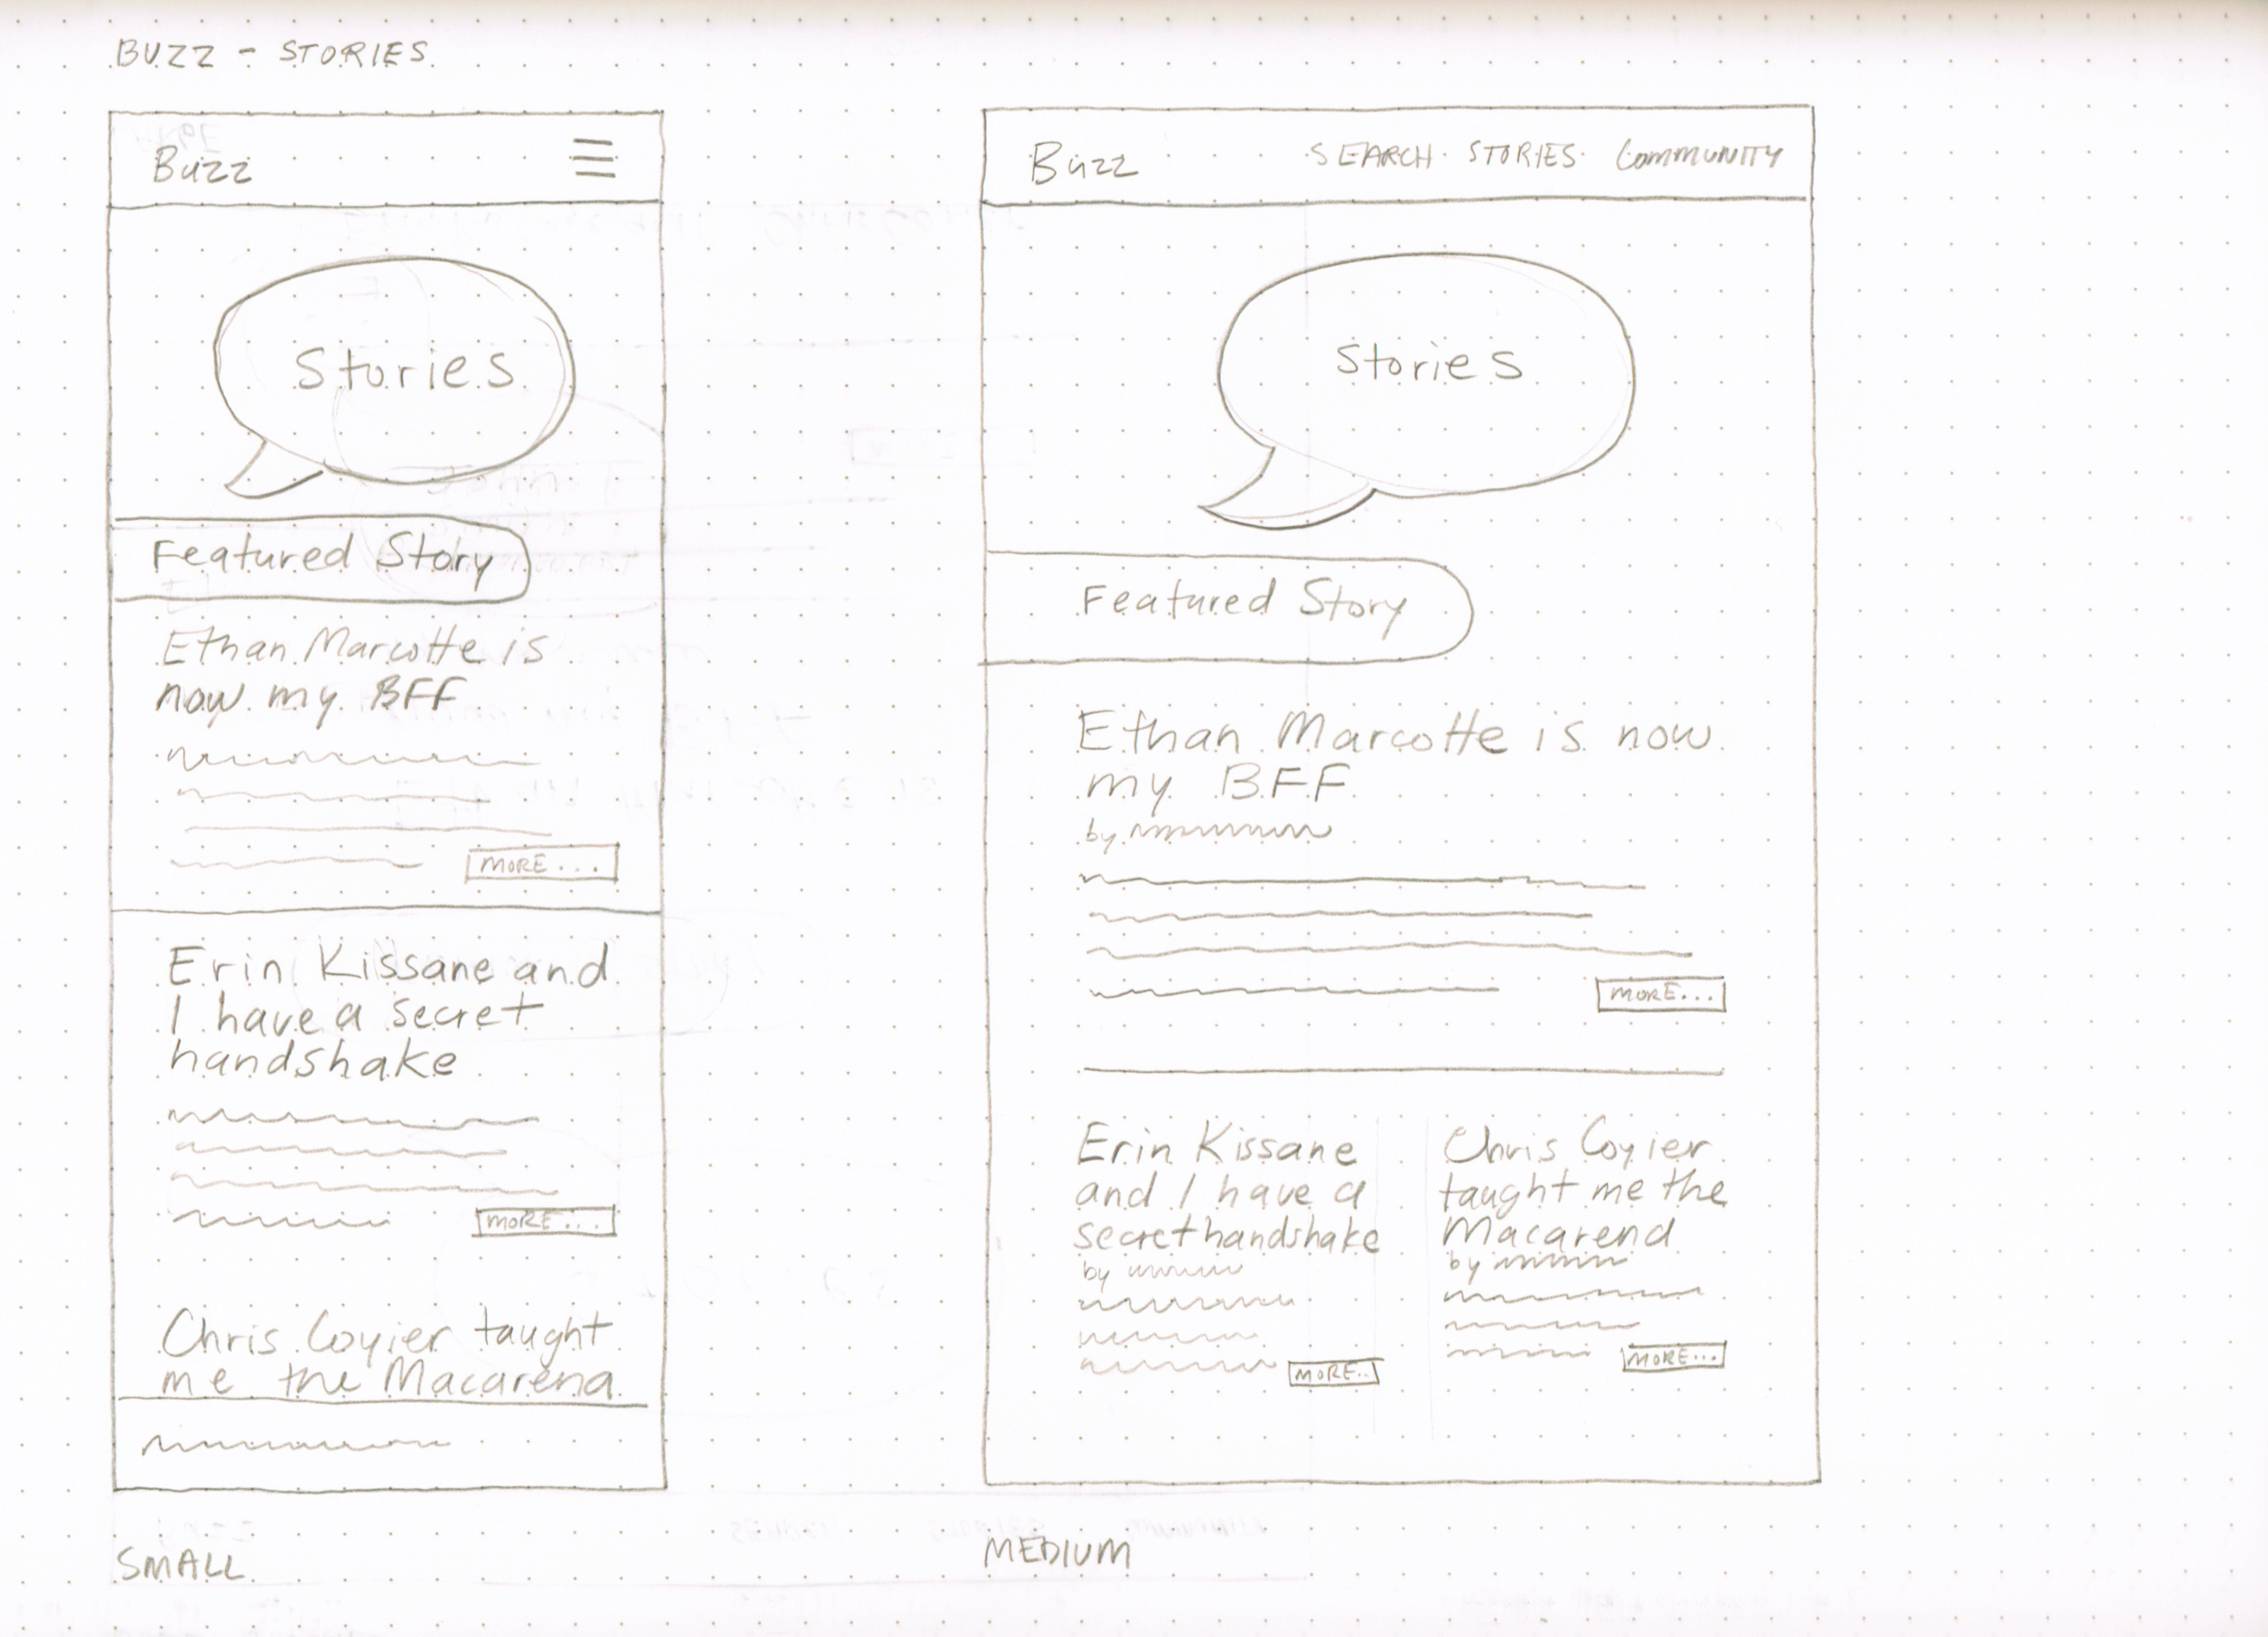 BUZZ - STORIES
Buzz
Stories
Featured Story
Ethan Marcotte is
now my BFF
MORE...
Erin Kissane and
I have a secret
handshake
MORE...
Chris Coyier taught
me the Macarena
SMALL
Buzz SEARCH STORIES COMMUNITY
Stories
Featured Story
Ethan Marcotte is now
my BFF
by
MORE...
Erin Kissane
and I have a
secret handshake
by
MORE..
Chris Coyier
taught me the
Macarena
by
MORE...
MEDIUM